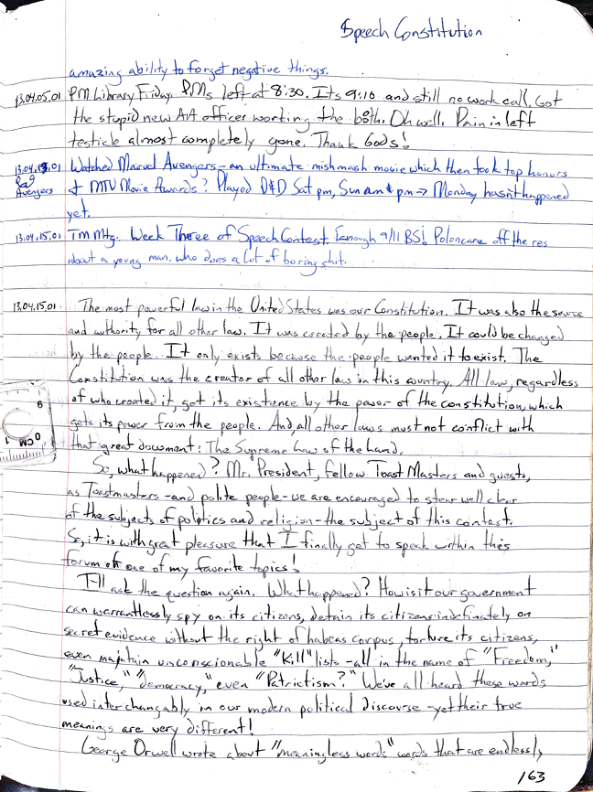 Speech Constitution
amazing ability to forget negative things.
13.04.05.01 PM Library Friday PMs left at 8:30. Its 9:10 and still no work call. Got
the stupid new AA officer working the both. Oh well. Pain in left
testicle almost completely gone. Thank Gods!
Watched Marvel Avengers - an ultimate mishmash movie which then took top honors
Avengers
& MTV Movie Awards? Played D&D Sat pm, Sun am & pm → Monday hasn't happened
yet.
13.04.15.01 TM Mtg. Week Three of Speech Contest. Enough 9/11 BS! off the res
about a young man. who does a lot of boring shit.
13.04.15.01 The most powerful law in the United States was our Constitution. It was also the source
and authority for all other law. It was created by the people. It could be changed
by the people. It only exists because the people wanted it to exist. The
Constitution was the creator of all other law in this country. All law, regardless
of who created it, got its existence by the power of the constitution, which
gets its power from the people. And, all other laws must not conflict with
that great document: The Supreme Law of the Land.
So, what happened? Mr. President, fellow Toast Masters and guests,
as Toastmasters - and polite people - we are encouraged to stear well clear
of the subjects of politics and religion - the subject of this contest.
So, it is with great pleasure that I finally get to speak within this
forum of one of my favorite topics!
I'll ask the question again. What happened? How is it our government
can warrantlessly spy on its citizens, detain its citizens indefinately on
secret evidence without the right of habeas corpus, torture its citizens,
even maintain unconscionable "Kill" lists - all in the name of "Freedom,"
"Justice," "democracy," even "Patriotism?" We've all heard these words
used interchangably in our modern political discourse - yet their true
meanings are very different!
George Orwell wrote about "meaningless words" words that are endlessly
163
9
0 CM 1